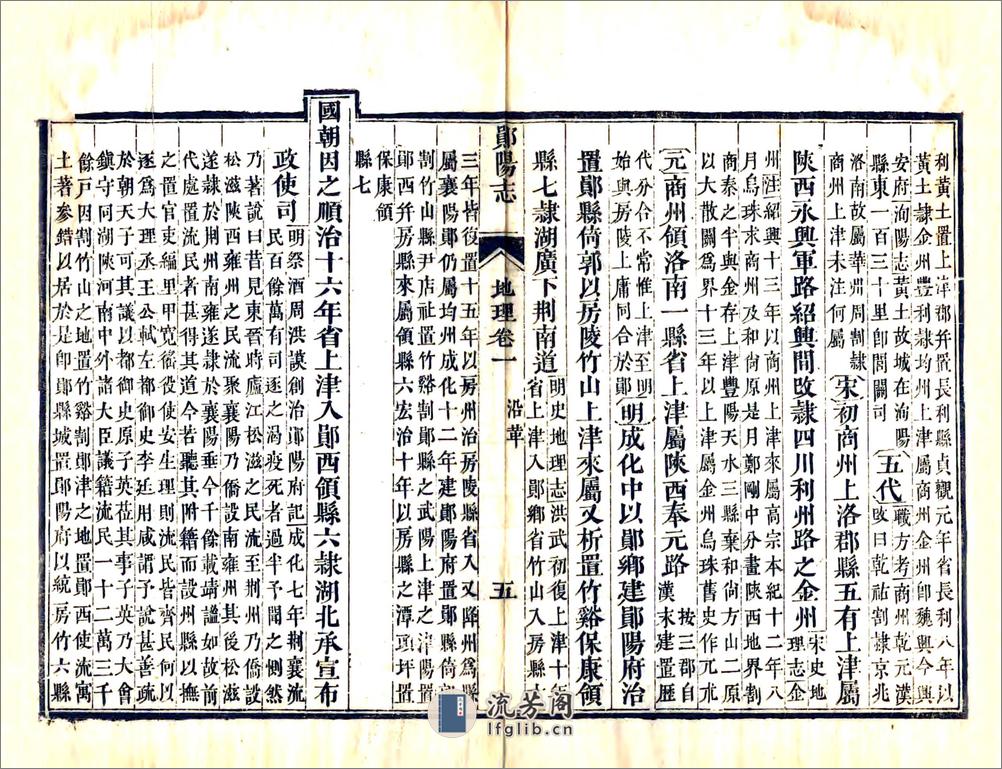 利黃土置上津郡并置長利縣貞觀元年省長利八年以
黃土隸金州豐利隸均州上津屬商州卽魏興今興
安府洵陽志黃土故城在洵陽
縣東一百三十里卽閭關司
五代
職方考商州乾元漢
攺曰乾祐割隸京兆
洛南故屬華州周割隸
商州上津未注何屬
宋初商州上洛郡縣五有上津屬
陝西永興軍路紹興間改隸四川利州路之金州
宋史地
理志金
州注紹興十三年以商州上津來屬高宗本紀十二年八
月烏珠求商州及和尙原是月鄭剛中分畫陝西地界割
商秦之半與金存上津豐陽天水三縣棄和尙方山二原
以大散關爲界十三年以上津屬金州烏珠舊史作兀朮
元商州領洛南一縣省上津屬陝西奉元路
按三郡自
漢末建置歷
代分合不常惟上津至明
始與房陵上庸同合於鄖
明成化中以鄖鄉建鄖陽府治
置鄖縣倚郭以房陵竹山上津來屬又析置竹谿保康領
縣七隸湖廣下荆南道
明史地理志洪武初復上津十年
省上津入鄖鄉省竹山入房縣十
鄖陽志
地理卷一
沿革
五
三年皆復置十五年以房州治房陵縣省入又降州爲縣
屬襄陽鄖仍屬均州成化十二年建鄖陽府置鄖縣倚郭
割竹山縣尹店社置竹谿割鄖縣之武陽上津之津陽置
鄖西幷房縣來屬領縣六宏治十年以房縣之潭頭坪置
保康領
縣七
國朝因之順治十六年省上津入鄖西領縣六隸湖北承宣布
政使司
明祭酒周洪謨創治鄖陽府記成化七年荆襄流
民百餘萬有司逐之渴疫死者過半予聞之惻然
乃著說曰昔見東晉時廬江松滋之民流至荆州乃僑設
松滋陝西雍州之民流聚襄陽乃僑設南雍州其後松滋
遂隸於荆州南雍遂隸於襄陽垂今千餘載靖謐如故前
代處置流民者甚得其道今若聽其附籍而設州縣以撫
之置官吏編里甲寬徭役使安生理則流民皆齊民何以
逐爲大理丞王公軾左都御史李廷用咸謂予說甚善疏
於朝天子可其議以都御史原子英莅其事子英乃大會
鎭守同湖陝河南中外諸大臣議籍流民一十二萬三千
餘戸因割竹山之地置竹谿割鄖津之地置鄖西使流寓
土著參錯以居於是卽鄖縣城置鄖陽府以統房竹六縣
流芳阁
lfglib.cn